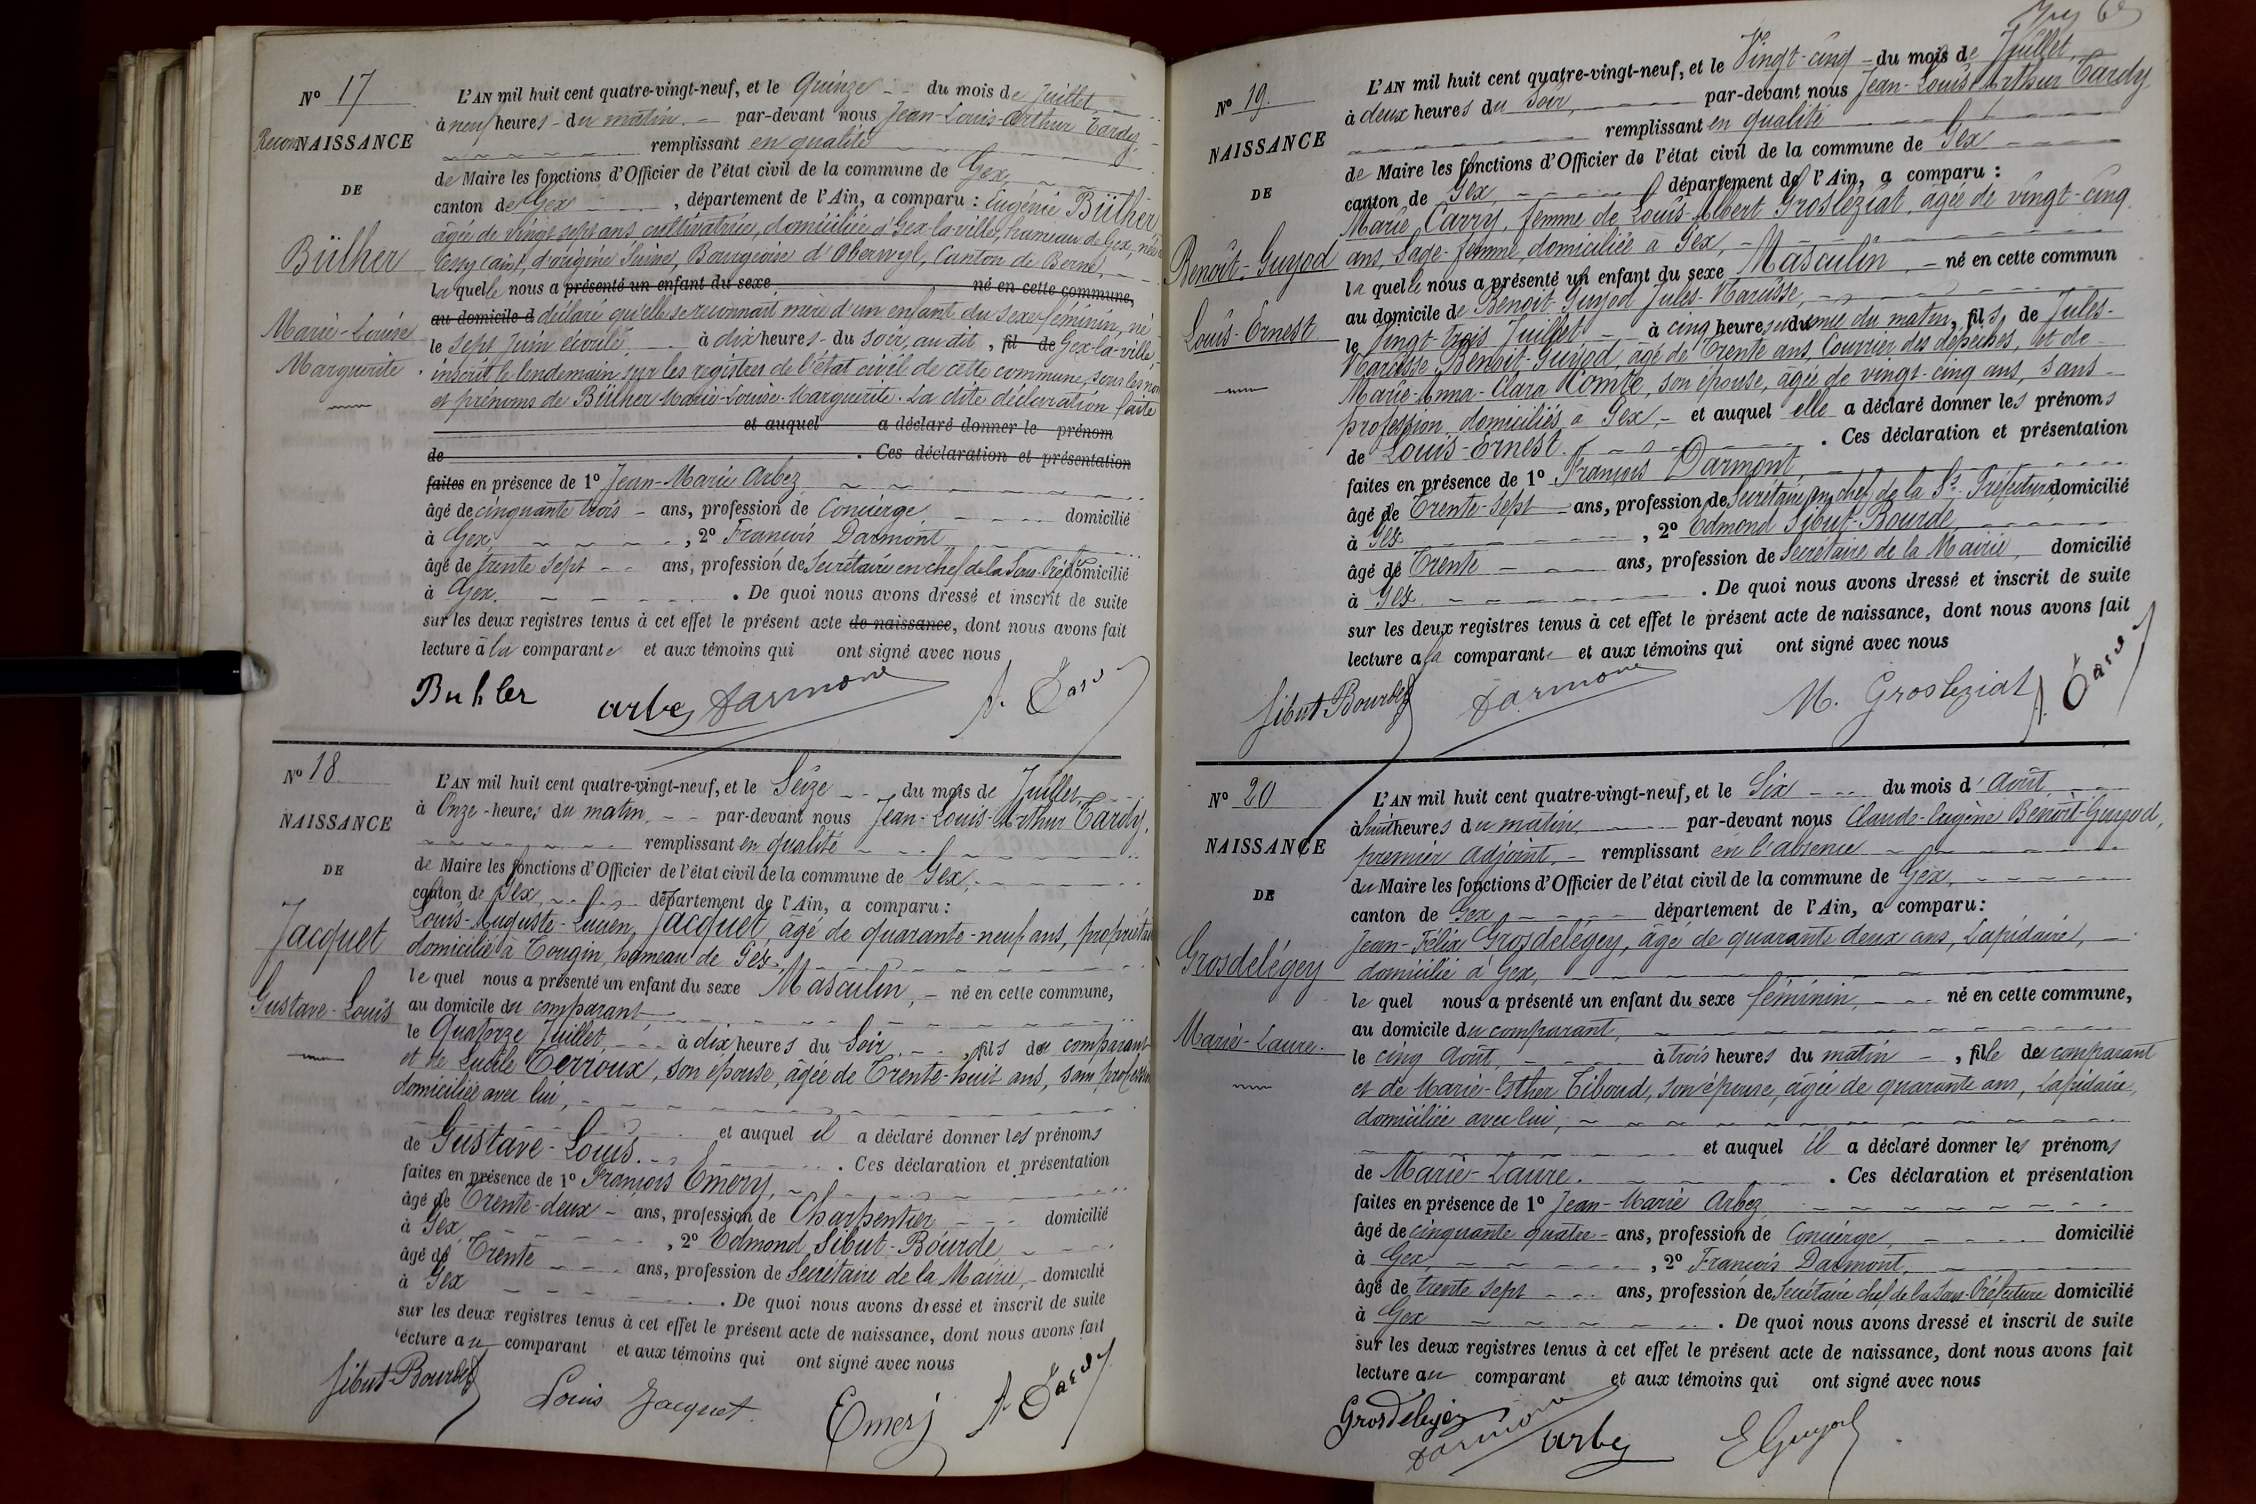 Nº 17
ReconNAISSANCE
DE
Bülher
Marie-Louise
Marguerite
L'AN mil huit cent quatre-vingt-neuf, et le Quinze du mois de Juillet
à neuf heures du matin par-devant nous Jean-Louis-Arthur Tardy
remplissant en qualité
de Maire les fonctions d'Officier de l'état civil de la commune de Gex
canton de Gex, département de l'Ain, a comparu : Eugénie Bülher
âgée de vingt sept ans cultivatrice, domiciliée à Gex-la-ville, hameau de Gex, née à
Cessy (ain), d'origine Suisse, Bourgeoise d'Oberwyl, Canton de Berne,
la quelle nous a présenté un enfant du sexe né en cette commune,
au domicile d déclaré qu'elle se reconnait mère d'un enfant du sexe féminin, né
le sept juin écoulé, à dix heures du soir, au dit, fil de Gex-la-ville
inscrit le lendemain sur les registres de l'état civil de cette commune, sous les nom
et prénoms de Bülher Marie-Louise-Marguerite. La dite déclaration faite
et auquel a déclaré donner le prénom
de . Ces déclaration et présentation
faites en présence de 1º Jean-Marie Arbez
âgé de cinquante trois ans, profession de Concierge domicilié
à Gex, 2º François Darmont
âgé de trente sept ans, profession de Secrétaire en chef de la Sous-Préfre domicilié
à Gex. De quoi nous avons dressé et inscrit de suite
sur les deux registres tenus à cet effet le présent acte de naissance, dont nous avons fait
lecture à la comparante et aux témoins qui ont signé avec nous
Buhler arbez Darmont A. Tardy
Nº 18
NAISSANCE
DE
Jacquet
Gustave-Louis
L'AN mil huit cent quatre-vingt-neuf, et le Seize du mois de Juillet
à Onze heures du matin, par-devant nous Jean-Louis-Arthur Tardy,
remplissant en qualité
de Maire les fonctions d'Officier de l'état civil de la commune de Gex,
canton de Gex, département de l'Ain, a comparu :
Louis-Auguste-Lucien Jacquet, âgé de quarante-neuf ans, propriétaire
domicilié à Tougin, hameau de Gex,
le quel nous a présenté un enfant du sexe Masculin, né en cette commune,
au domicile du comparant
le Quatorze Juillet à dix heures du Soir, fils de comparant
et de Lucile Terroux, son épouse, âgée de Trente-huit ans, sans profession
domiciliée avec lui,
et auquel il a déclaré donner les prénoms
de Gustave-Louis. Ces déclaration et présentation
faites en présence de 1º François Emery,
âgé de Trente-deux ans, profession de Charpentier domicilié
à Gex, 2º Edmond Sibut-Bourde
âgé de Trente ans, profession de Secrétaire de la Mairie, domicilié
à Gex. De quoi nous avons dressé et inscrit de suite
sur les deux registres tenus à cet effet le présent acte de naissance, dont nous avons fait
lecture au comparant et aux témoins qui ont signé avec nous
Sibut-Bourde Louis Jacquet Emery A. Tardy
Nº 19.
NAISSANCE
DE
Benoît-Guyod
Louis-Ernest
L'AN mil huit cent quatre-vingt-neuf, et le Vingt-cinq du mois de Juillet,
à deux heures du Soir, par-devant nous Jean-Louis-Arthur Tardy
remplissant en qualité
de Maire les fonctions d'Officier de l'état civil de la commune de Gex
canton de Gex, département de l'Ain, a comparu :
Marie Carry, femme de Louis-Albert Grosleziat, âgée de vingt-cinq
ans, Sage-femme, domiciliée à Gex,
la quelle nous a présenté un enfant du sexe Masculin, né en cette commun
au domicile de Benoît-Guyod Jules-Narcisse,
le Vingt-trois Juillet à cinq heures et demie du matin, fils de Jules-
Narcisse Benoît-Guyod, âgé de Trente ans, Courrier des dépêches, et de
Marie-Anna-Clara Comte, son épouse, âgée de vingt-cinq ans, sans
profession, domiciliés à Gex, et auquel elle a déclaré donner les prénoms
de Louis-Ernest. Ces déclaration et présentation
faites en présence de 1º François Darmont
âgé de Trente-sept ans, profession de Secrétaire en chef de la Ss Préfecture domicilié
à Gex, 2º Edmond Sibut-Bourde,
âgé de Trente ans, profession de Secrétaire de la Mairie, domicilié
à Gex. De quoi nous avons dressé et inscrit de suite
sur les deux registres tenus à cet effet le présent acte de naissance, dont nous avons fait
lecture a la comparante et aux témoins qui ont signé avec nous
Sibut Bourde Darmont M. Grosleziat A. Tardy
Nº 20
NAISSANCE
DE
Grosdelégey
Marie-Laure.
L'AN mil huit cent quatre-vingt-neuf, et le Six du mois d'Août,
à huit heures du matin, par-devant nous Claude-Eugène Benoît-Guyod,
premier adjoint, remplissant en l'absence
du Maire les fonctions d'Officier de l'état civil de la commune de Gex,
canton de Gex, département de l'Ain, a comparu :
Jean-Félix Grosdelégey, âgé de quarante deux ans, Lapidaire,
domicilié à Gex,
le quel nous a présenté un enfant du sexe féminin, né en cette commune,
au domicile du comparant,
le cinq Août, à trois heures du matin, fille de comparant
et de Marie-Esther Tiboud, son épouse, âgée de quarante ans, Lapidaire,
domiciliée avec lui,
et auquel il a déclaré donner les prénoms
de Marie-Laure. Ces déclaration et présentation
faites en présence de 1º Jean-Marie Arbez
âgé de cinquante quatre ans, profession de Concierge, domicilié
à Gex, 2º François Darmont,
âgé de trente sept ans, profession de Secrétaire chef de la Sous-Préfecture domicilié
à Gex. De quoi nous avons dressé et inscrit de suite
sur les deux registres tenus à cet effet le présent acte de naissance, dont nous avons fait
lecture au comparant et aux témoins qui ont signé avec nous
Grosdelégey Darmont arbez E Guyod